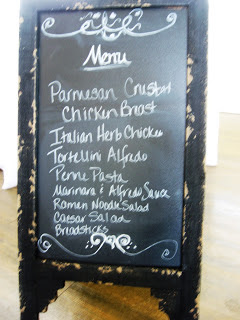 Menu
Parmesan Crusted
Chicken Breast
Italian Herb Chicken
Tortellini Alfredo
Penne Pasta
Marinara & Alfredo Sauce
Ramen Noodle Salad
Caesar Salad
Breadsticks